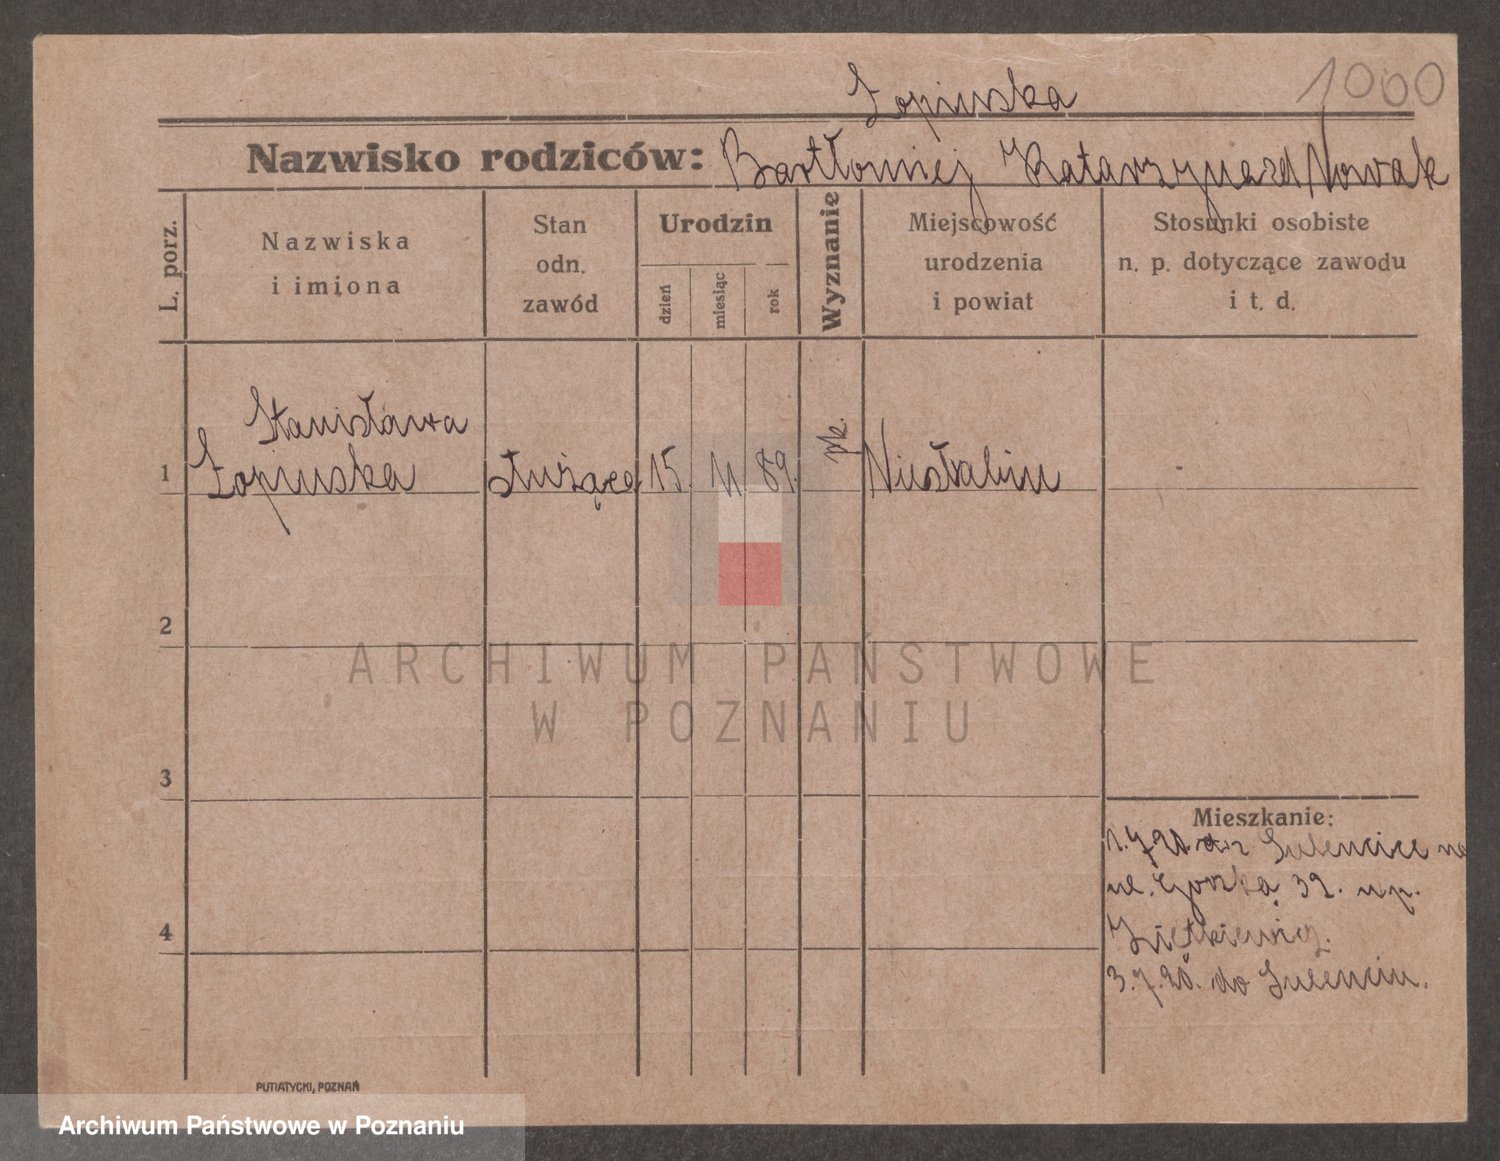 1000
Łopinska
Nazwisko rodziców: Bartłomiej Katarzyna zd Nowak
L. porz.
Nazwiska
i imiona
Stan
odn.
zawód
Urodzin
dzień
miesiąc
rok
Wyznanie
Miejscowość
urodzenia
i powiat
Stosunki osobiste
n. p. dotyczące zawodu
i t. d.
Stanisława
1 Łopinska służąca 15. 11 89. rk. Niestabin
2
ARCHIWUM PAŃSTWOWE
W POZNANIU
3
Mieszkanie:
1.7 20 z Sulencice na
ul. Górską 39. up.
4
3.7.20. do Sulencin.
PUTIATYCKI, POZNAŃ
Archiwum Państwowe w Poznaniu